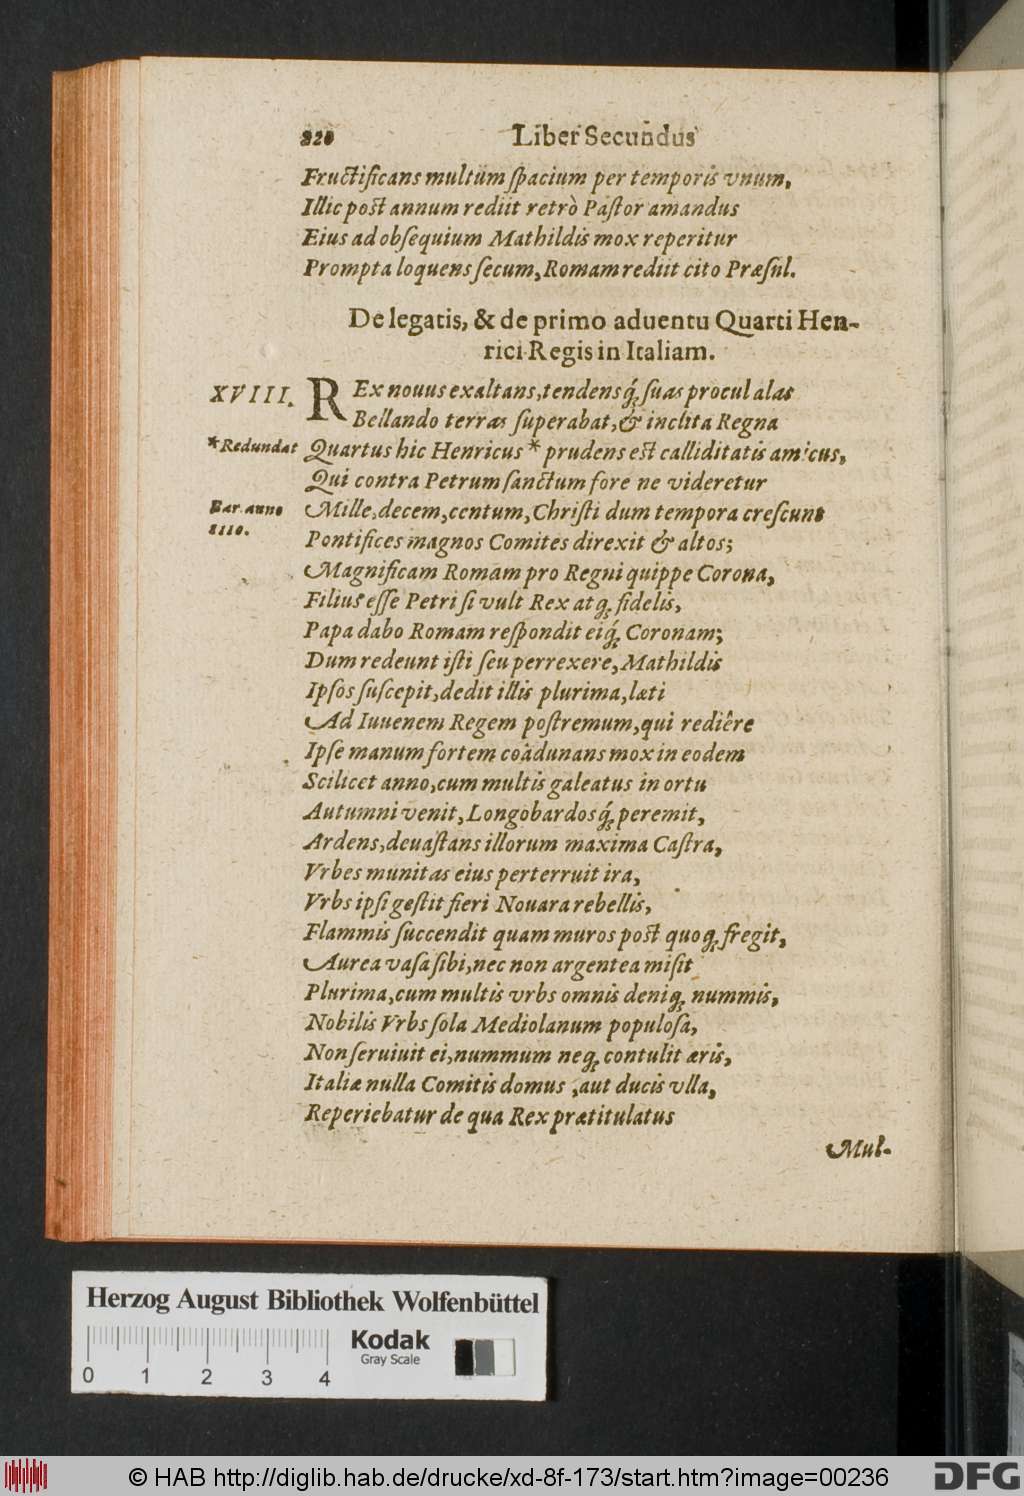 220 Liber Secundus
Fructificans multùm ſpacium per temporis vnum,
Illic post annum rediit retrò Paſtor amandus
Eius ad obſequium Mathildis mox reperitur
Prompta loquens ſecum, Romam rediit cito Præſul.
De legatis, & de primo aduentu Quarti Hen-
rici Regis in Italiam.
XVIII. REx nouus exaltans, tendensq́; ſuas procul alas
Bellando terras ſuperabat, & inclita Regna
*Redundat Quartus hic Henricus * prudens est calliditatis amicus,
Qui contra Petrum ſanctum fore ne videretur
Bar. anno Mille, decem, centum, Chriſti dum tempora creſcunt
1110. Pontifices magnos Comites direxit & altos;
Magnificam Romam pro Regni quippe Corona,
Filius eſſe Petri ſi vult Rex atq; fidelis,
Papa dabo Romam reſpondit eiq́; Coronam;
Dum redeunt iſti ſeu perrexere, Mathildis
Ipſos ſuſcepit, dedit illis plurima, læti
Ad Iuuenem Regem poſtremum, qui rediêre
Ipſe manum fortem coàdunans mox in eodem
Scilicet anno, cum multis galeatus in ortu
Autumni venit, Longobardosq́; peremit,
Ardens, deuaſtans illorum maxima Caſtra,
Vrbes munitas eius perterruit ira,
Vrbs ipſi geſtit fieri Nouara rebellis,
Flammis ſuccendit quam muros post quoq; fregit,
Aurea vaſa ſibi, nec non argentea miſit
Plurima, cum multis vrbs omnis deniq; nummis,
Nobilis Vrbs ſola Mediolanum populoſa,
Non ſeruiuit ei, nummum neq; contulit æris,
Italiæ nulla Comitis domus, aut ducis vlla,
Reperiebatur de qua Rex prætitulatus
Mul-
Herzog August Bibliothek Wolfenbüttel
Kodak
Gray Scale
0 1 2 3 4
© HAB http://diglib.hab.de/drucke/xd-8f-173/start.htm?image=00236
DFG